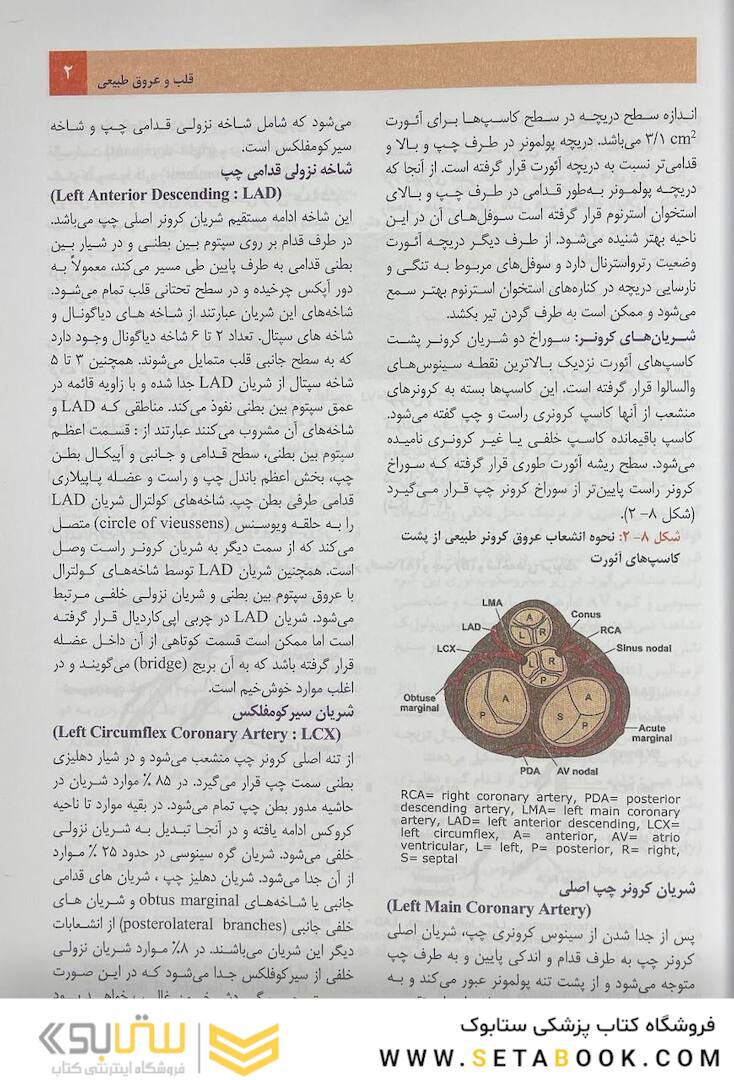 قلب و عروق طبیعی
۲
اندازه سطح دریچه در سطح کاسپ‌ها برای آئورت
۳/۱ cm² می‌باشد. دریچه پولمونر در طرف چپ و بالا و
قدامی‌تر نسبت به دریچه آئورت قرار گرفته است. از آنجا که
دریچه پولمونر به‌طور قدامی در طرف چپ و بالای
استخوان استرنوم قرار گرفته است سوفل‌های آن در این
ناحیه بهتر شنیده می‌شود. از طرف دیگر دریچه آئورت
وضعیت رترواسترنال دارد و سوفل‌های مربوط به تنگی و
نارسایی دریچه در کناره‌های استخوان استرنوم بهتر سمع
می‌شود و ممکن است به طرف گردن تیر بکشد.
شریان‌های کرونر: سوراخ دو شریان کرونر پشت
کاسپ‌های آئورت نزدیک بالاترین نقطه سینوس‌های
والسالوا قرار گرفته است. این کاسپ‌ها بسته به کرونرهای
منشعب از آنها کاسپ کرونری راست و چپ گفته می‌شود.
کاسپ باقیمانده کاسپ خلفی یا غیر کرونری نامیده
می‌شود. سطح ریشه آئورت طوری قرار گرفته که سوراخ
کرونر راست پایین‌تر از سوراخ کرونر چپ قرار می‌گیرد
(شکل ۸–۲).
شکل ۸–۲: نحوه انشعاب عروق کرونر طبیعی از پشت
کاسپ‌های آئورت
LMA
Conus
LAD
RCA
A
L R
Sinus nodal
LCX
L R
P
Obtuse
marginal
A
P
A
S
P
Acute
marginal
PDA
AV nodal
RCA= right coronary artery, PDA= posterior
descending artery, LMA= left main coronary
artery, LAD= left anterior descending, LCX=
left circumflex, A= anterior, AV= atrio
ventricular, L= left, P= posterior, R= right,
S= septal
شریان کرونر چپ اصلی
(Left Main Coronary Artery)
پس از جدا شدن از سینوس کرونری چپ، شریان اصلی
کرونر چپ به طرف قدام و اندکی پایین و به طرف چپ
متوجه می‌شود و از پشت تنه پولمونر عبور می‌کند و به
می‌شود که شامل شاخه نزولی قدامی چپ و شاخه
سیرکومفلکس است.
شاخه نزولی قدامی چپ
(Left Anterior Descending : LAD)
این شاخه ادامه مستقیم شریان کرونر اصلی چپ می‌باشد.
در طرف قدام بر روی سپتوم بین بطنی و در شیار بین
بطنی قدامی به طرف پایین طی مسیر می‌کند، معمولاً به
دور آپکس چرخیده و در سطح تحتانی قلب تمام می‌شود.
شاخه‌های این شریان عبارتند از شاخه های دیاگونال و
شاخه های سپتال. تعداد ۲ تا ۶ شاخه دیاگونال وجود دارد
که به سطح جانبی قلب متمایل می‌شوند. همچنین ۳ تا ۵
شاخه سپتال از شریان LAD جدا شده و با زاویه قائمه در
عمق سپتوم بین بطنی نفوذ می‌کند. مناطقی که LAD و
شاخه‌های آن مشروب می‌کنند عبارتند از : قسمت اعظم
سپتوم بین بطنی، سطح قدامی و جانبی و آپیکال بطن
چپ، بخش اعظم باندل چپ و راست و عضله پاپیلاری
قدامی طرفی بطن چپ. شاخه‌های کولترال شریان LAD
را به حلقه ویوسنس (circle of vieussens) متصل
می‌کند که از سمت دیگر به شریان کرونر راست وصل
است. همچنین شریان LAD توسط شاخه‌های کولترال
با عروق سپتوم بین بطنی و شریان نزولی خلفی مرتبط
می‌شود. شریان LAD در چربی اپی‌کاردیال قرار گرفته
است اما ممکن است قسمت کوتاهی از آن داخل عضله
قرار گرفته باشد که به آن بریج (bridge) می‌گویند و در
اغلب موارد خوش‌خیم است.
شریان سیرکومفلکس
(Left Circumflex Coronary Artery : LCX)
از تنه اصلی کرونر چپ منشعب می‌شود و در شیار دهلیزی
بطنی سمت چپ قرار می‌گیرد. در ۸۵ ٪ موارد شریان در
حاشیه مدور بطن چپ تمام می‌شود. در بقیه موارد تا ناحیه
کروکس ادامه یافته و در آنجا تبدیل به شریان نزولی
خلفی می‌شود. شریان گره سینوسی در حدود ۲۵ ٪ موارد
از آن جدا می‌شود. شریان دهلیز چپ ، شریان های قدامی
جانبی یا شاخه‌های obtus marginal و شریان های
خلفی جانبی (posterolateral branches) از انشعابات
دیگر این شریان می‌باشند. در ۸٪ موارد شریان نزولی
خلفی از سیرکوفلکس جدا می‌شود که در این صورت
فروشگاه کتاب پزشکی ستابوک
WWW.SETABOOK.COM
ستابوک
فروشگاه اینترنتی کتاب